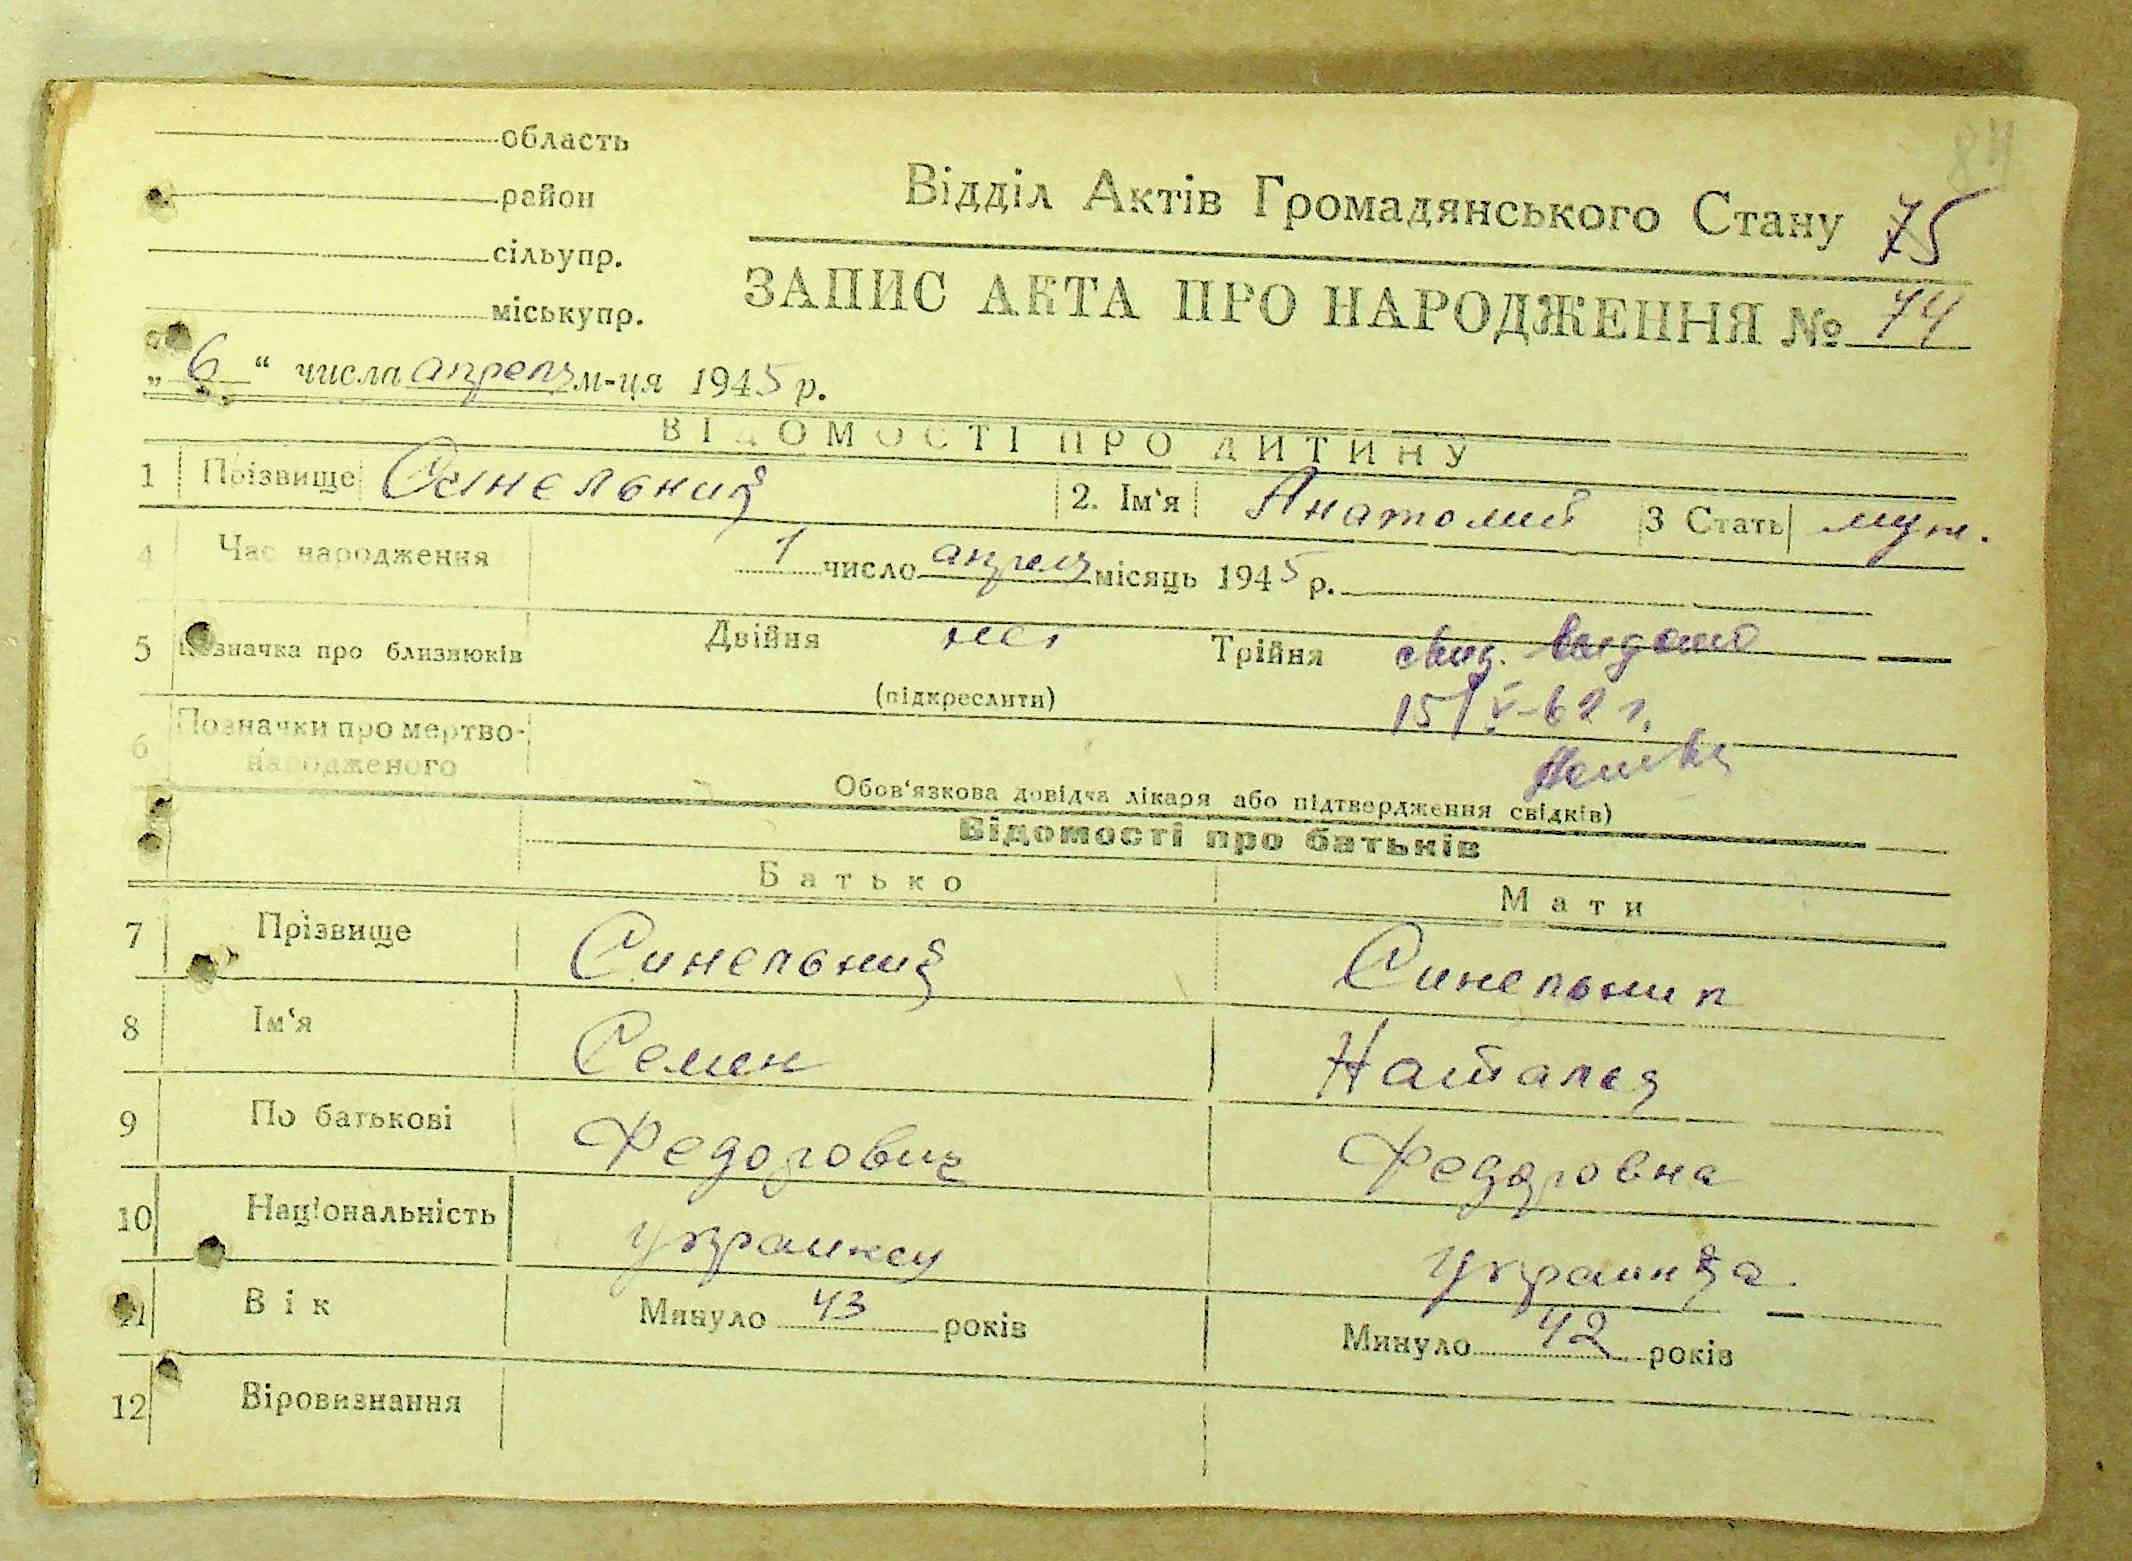 84
область
район
сільупр.
міськупр.
Відділ Актів Громадянського Стану 75
ЗАПИС АКТА ПРО НАРОДЖЕННЯ № 74
„ 6 “ числа апреля м-ця 1945 р.
ВІДОМОСТІ ПРО ДИТИНУ
1 Прізвище Синельний 2. Ім‘я Анатолий 3 Стать муж.
4 Час народження 1 число апреля місяць 1945 р.
5 Позначка про близнюків Двійня нет Трійня
свид. выдано
(підкреслити)
15/V-62 г.
6 Позначки про мертво-
народженого
Обов‘язкова довідка лікаря або підтвердження свідків)
Відомості про батьків
Батько Мати
7 Прізвище Синельний Синельник
8 Ім‘я Семен Наталья
9 По батькові Федорович Федоровна
10 Національність украинец украинка
11 Вік Минуло 43 років Минуло 42 років
12 Віровизнання